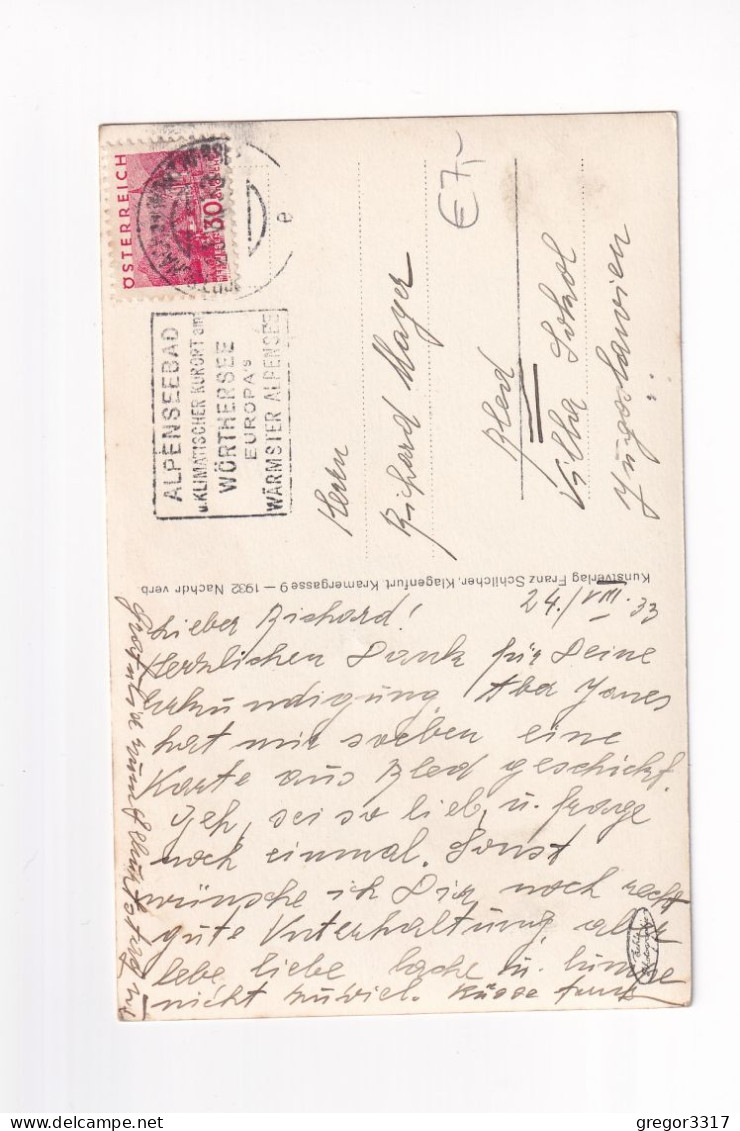 ÖSTERREICH
30
e
ALPENSEEBAD
u. KLIMATISCHER KURORT am
WÖRTHERSEE
EUROPA's
WÄRMSTER ALPENSEE
€7,-
Herrn
Richard Mayer
Bled
Vilha Sokol
Jugoslawien
Kunstverlag Franz Schilcher, Klagenfurt, Kramergasse 9 — 1932 Nachdr verb
24./VIII. 33
Lieber Richard!
Herzlichen Dank für Deine
Erkundigung. Aber Janes
hat mir soeben eine
Karte aus Bled geschickt.
Geh, sei so lieb, u. frage
noch einmal. Sonst
wünsche ich Dir noch recht
gute Unterhaltung, also
lebe, liebe lache u.
nicht zuviel. Küsse
zum Geburtstag
gregor3317